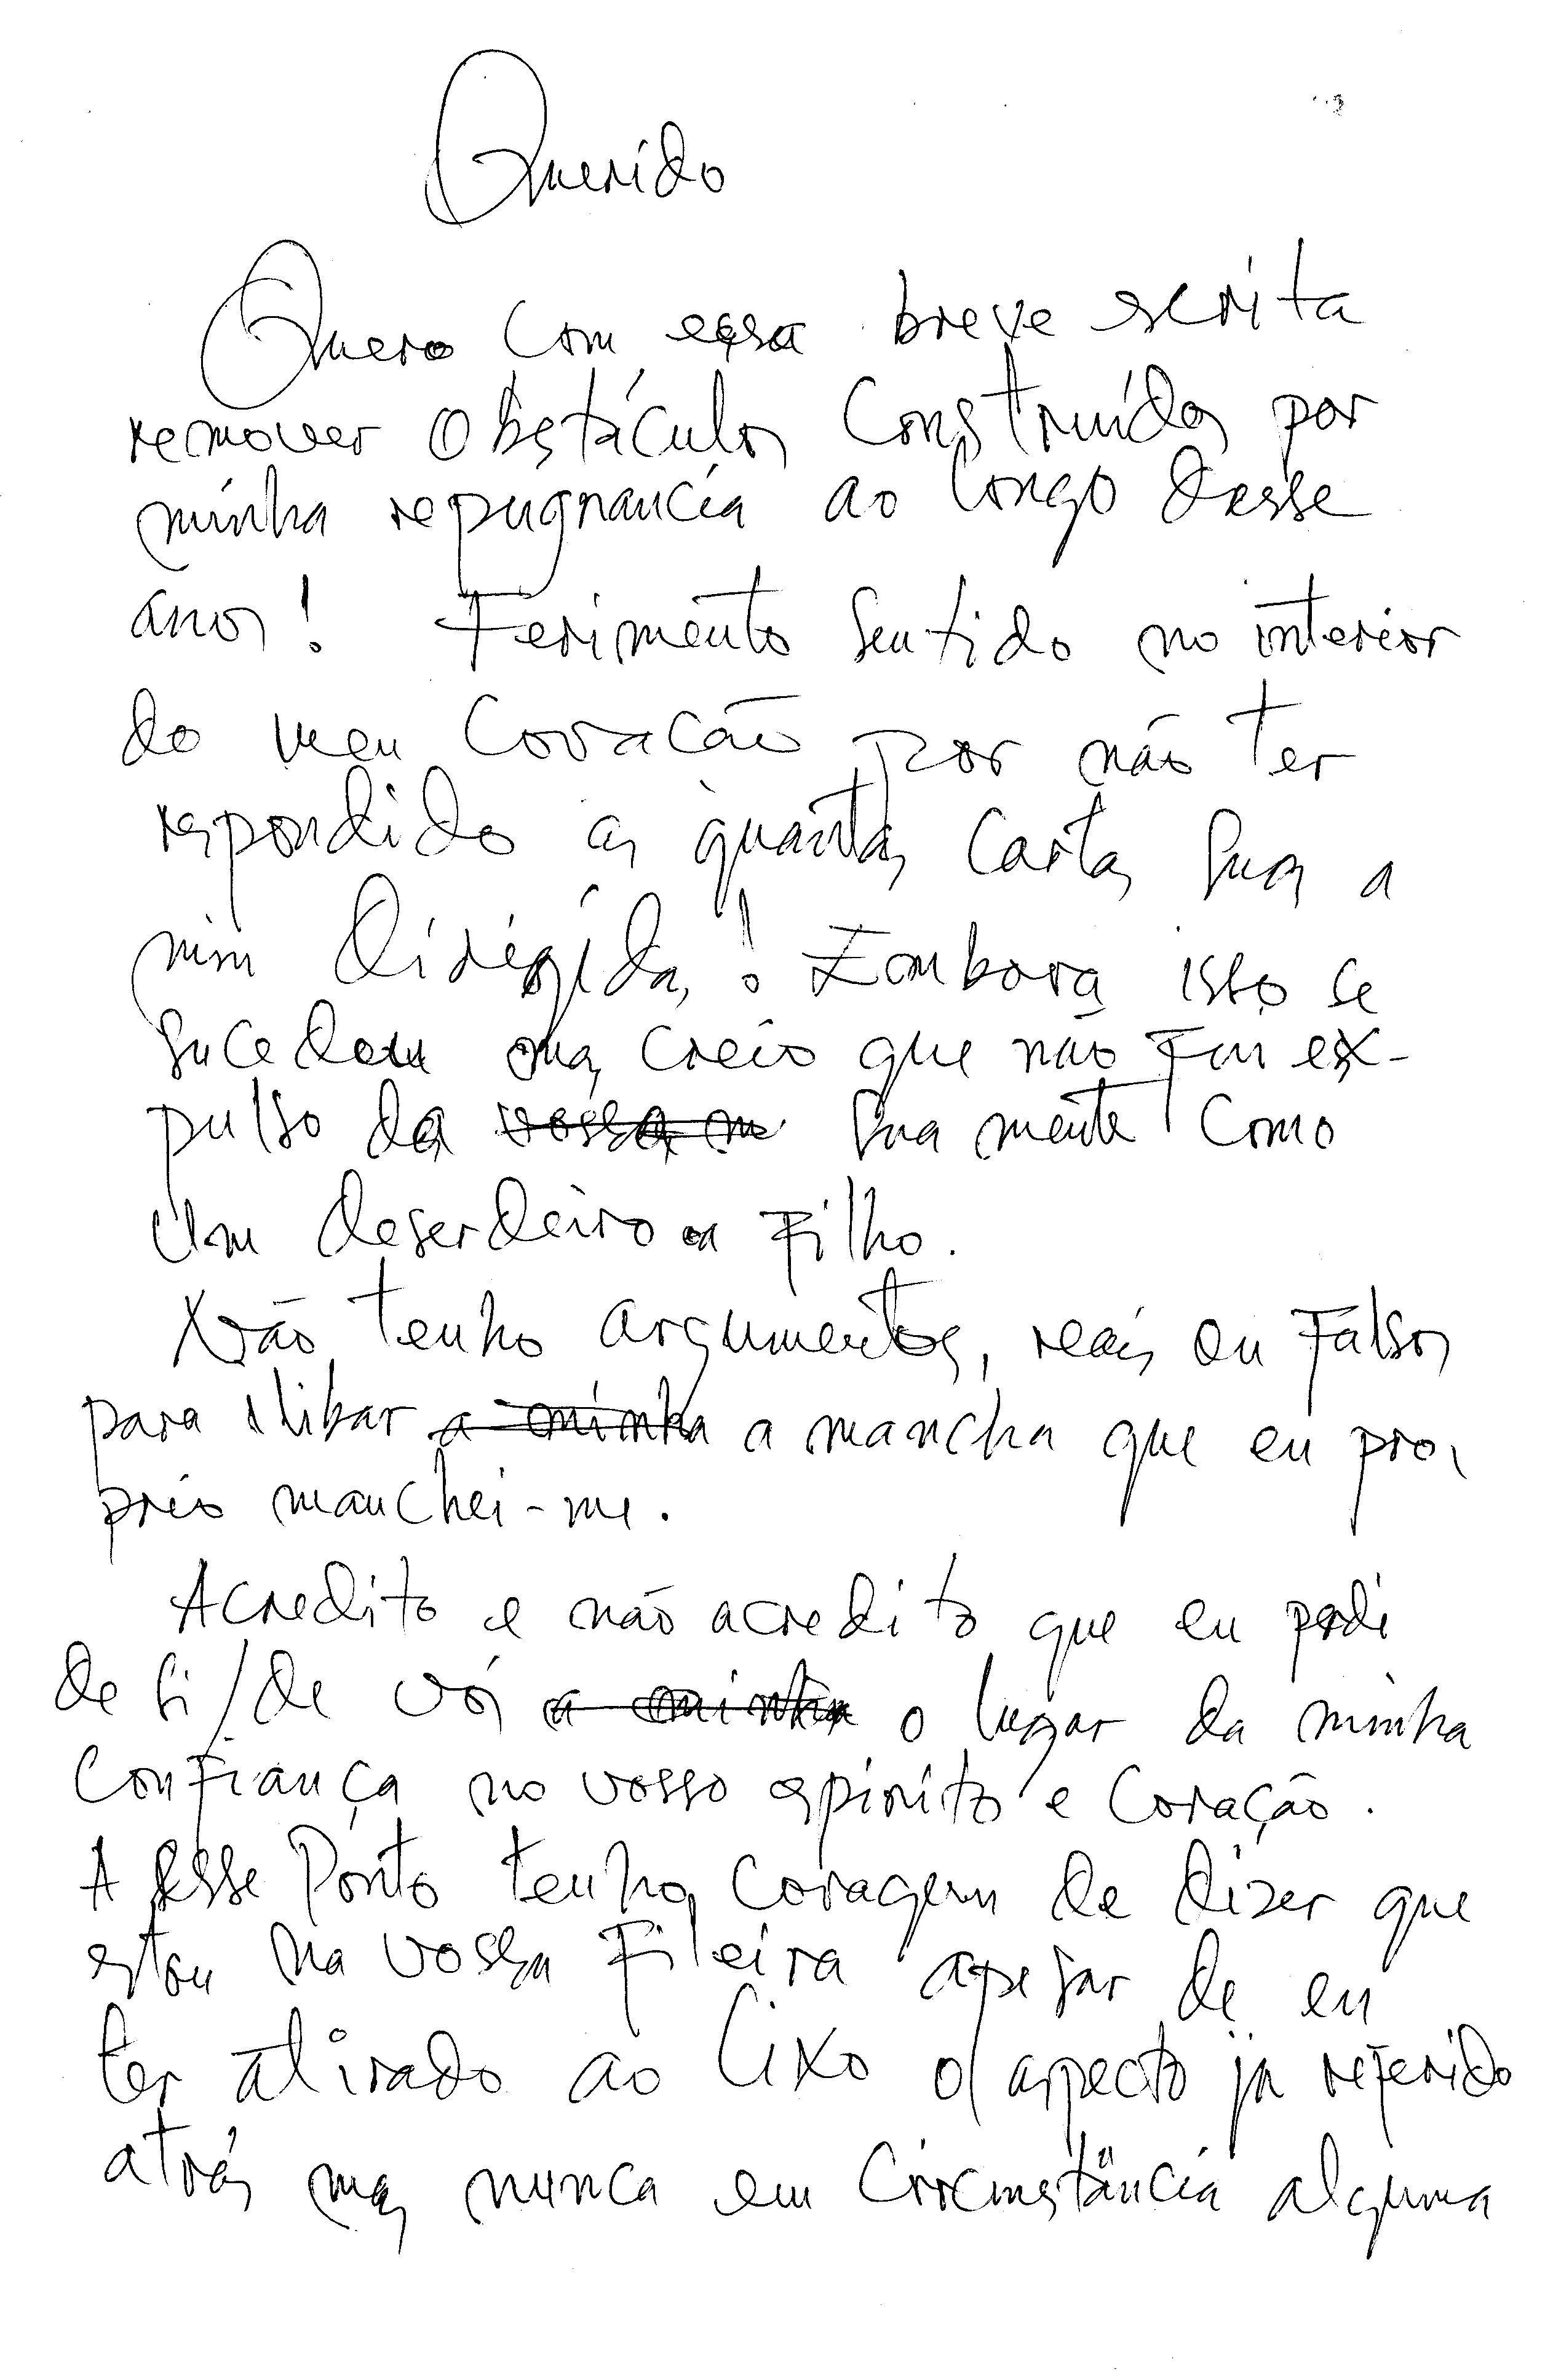 Querido
Quero com essa breve escrita
remover obstáculos construídos por
minha repugnancia ao longo desse
anos! Ferimento sentido no interior
do meu Coração por não ter
respondido as quantas cartas suas a
mim dirigidas! Embora isso se
sucedeu mas creio que não fui ex-
pulso da vossa m sua mente como
um deserdeiro filho.
Não tenho argumentos, reais ou falsos
para ilibar a minha a mancha que eu pro,
prio manchei-me.
Acredito e não acredito que eu perdi
de si/de vós a minha o lugar da minha
confiança no vosso espirito e coração.
A esse Ponto tenho coragem de dizer que
estou na vossa fileira apesar de eu
ter atirado ao lixo o aspecto já referido
atrás mas nunca em circunstância alguma